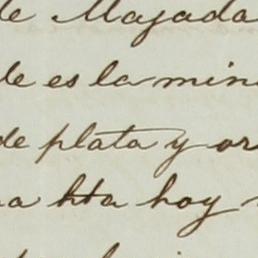 de Majada
de es la min
de plata y or
na hta hoy